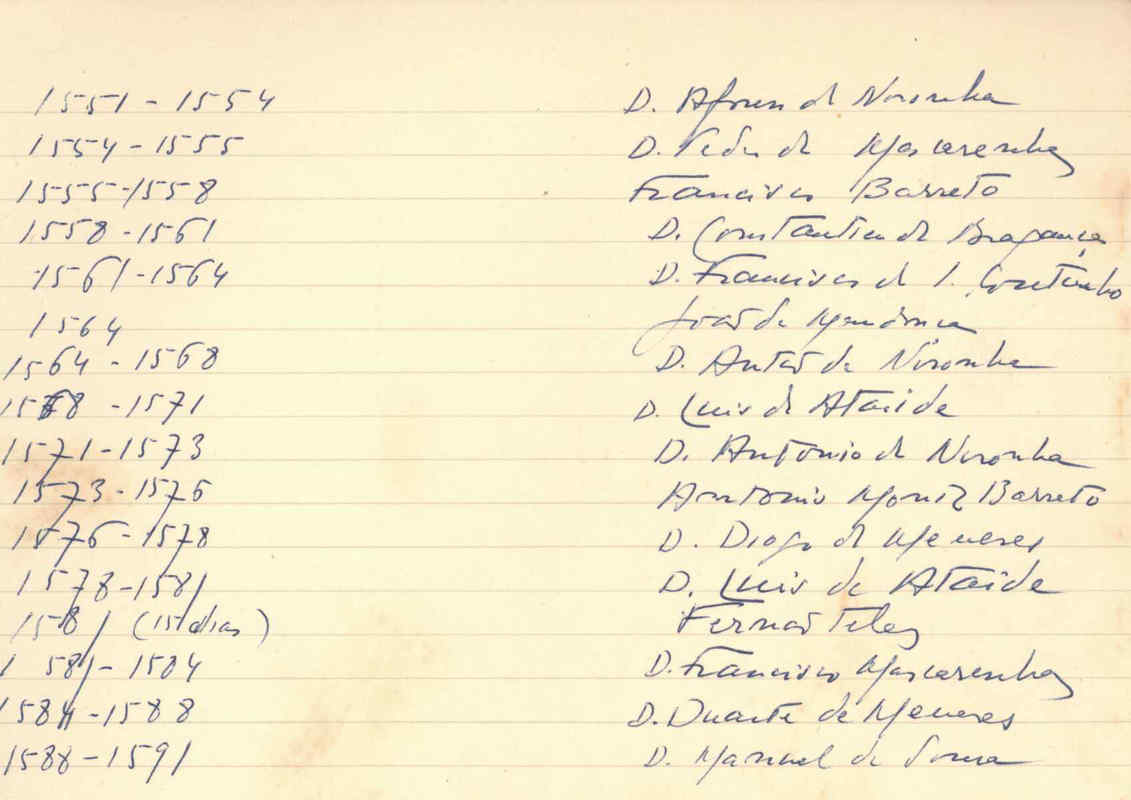 1551 - 1554 D. Afonso de Noronha
1554 - 1555 D. Pedro de Mascarenhas
1555 - 1558 Francisco Barreto
1558 - 1561 D. Constantino de Bragança
1561 - 1564 D. Francisco de Coutinho
1564 João de Mendonça
1564 - 1568 D. Antão de Noronha
1568 - 1571 D. Luis de Ataide
1571 - 1573 D. Antonio de Noronha
1573 - 1576 Antonio Moniz Barreto
1576 - 1578 D. Diogo de Meneses
1578 - 1581 D. Luis de Ataide
1581 (15 dias) Fernão Teles
1581 - 1584 D. Francisco Mascarenhas
1584 - 1588 D. Duarte de Meneses
1588 - 1591 D. Manuel de Sousa